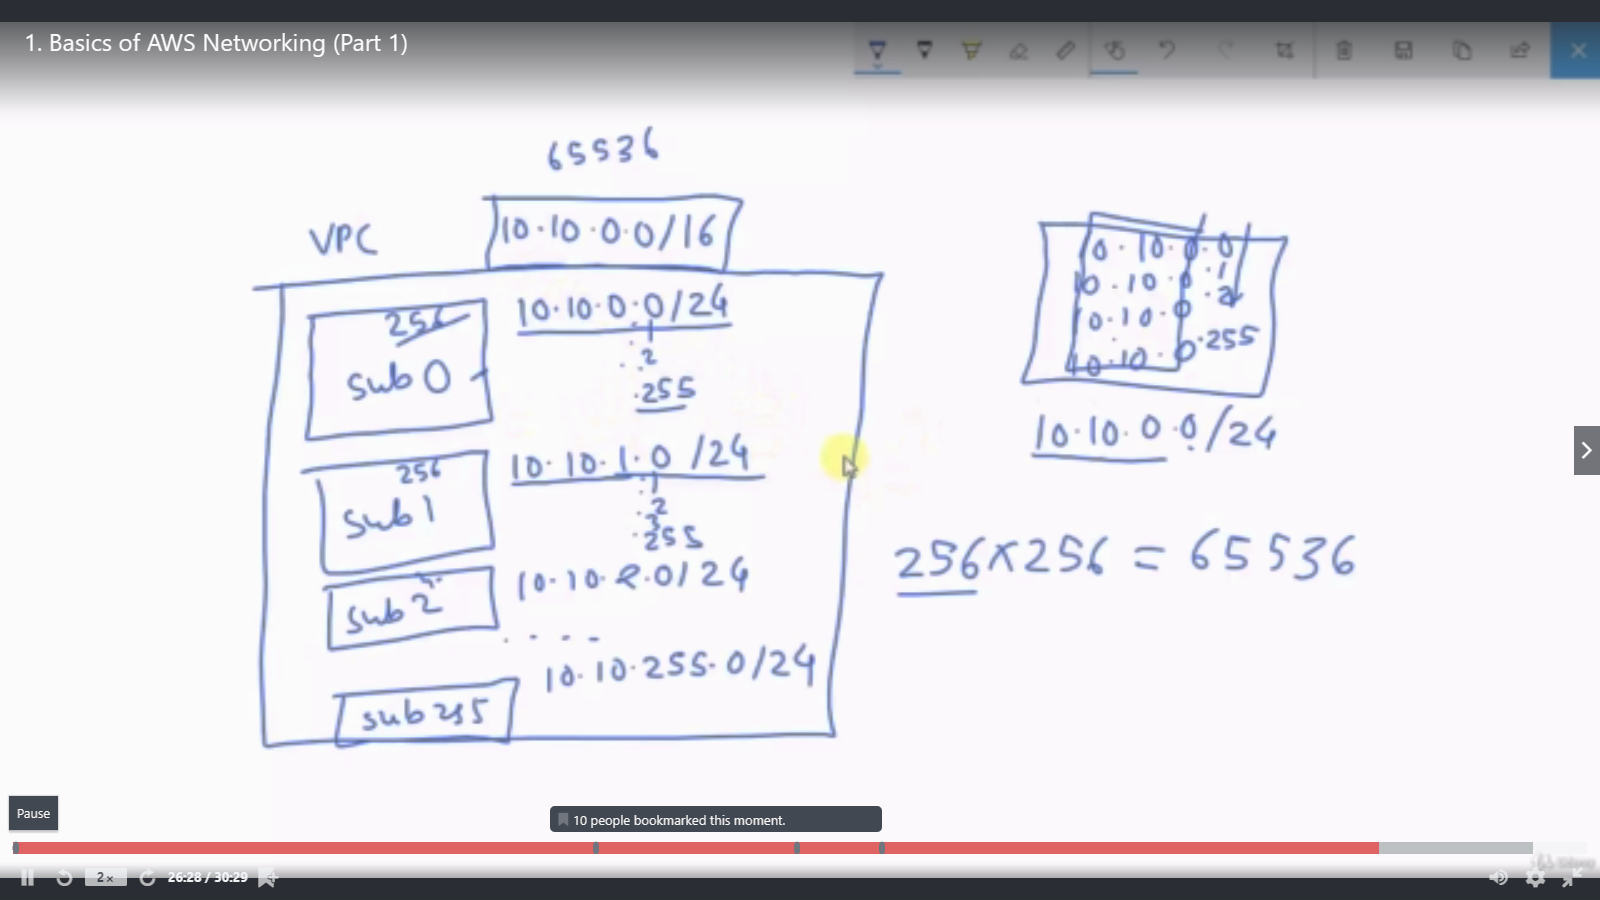 1. Basics of AWS Networking (Part 1)
65536
VPC
10.10.0.0/16
256
sub 0
10.10.0.0/24
.1
.2
.255
256
sub 1
10.10.1.0/24
.1
.2
.3
.255
sub 2
10.10.2.0/24
. . . .
sub 255
10.10.255.0/24
10.10.0.0
10.10.0.1
10.10.0.2
10.10.0.255
10.10.0.0/24
256x256 = 65536
Pause
10 people bookmarked this moment.
2x
26:28 / 30:29